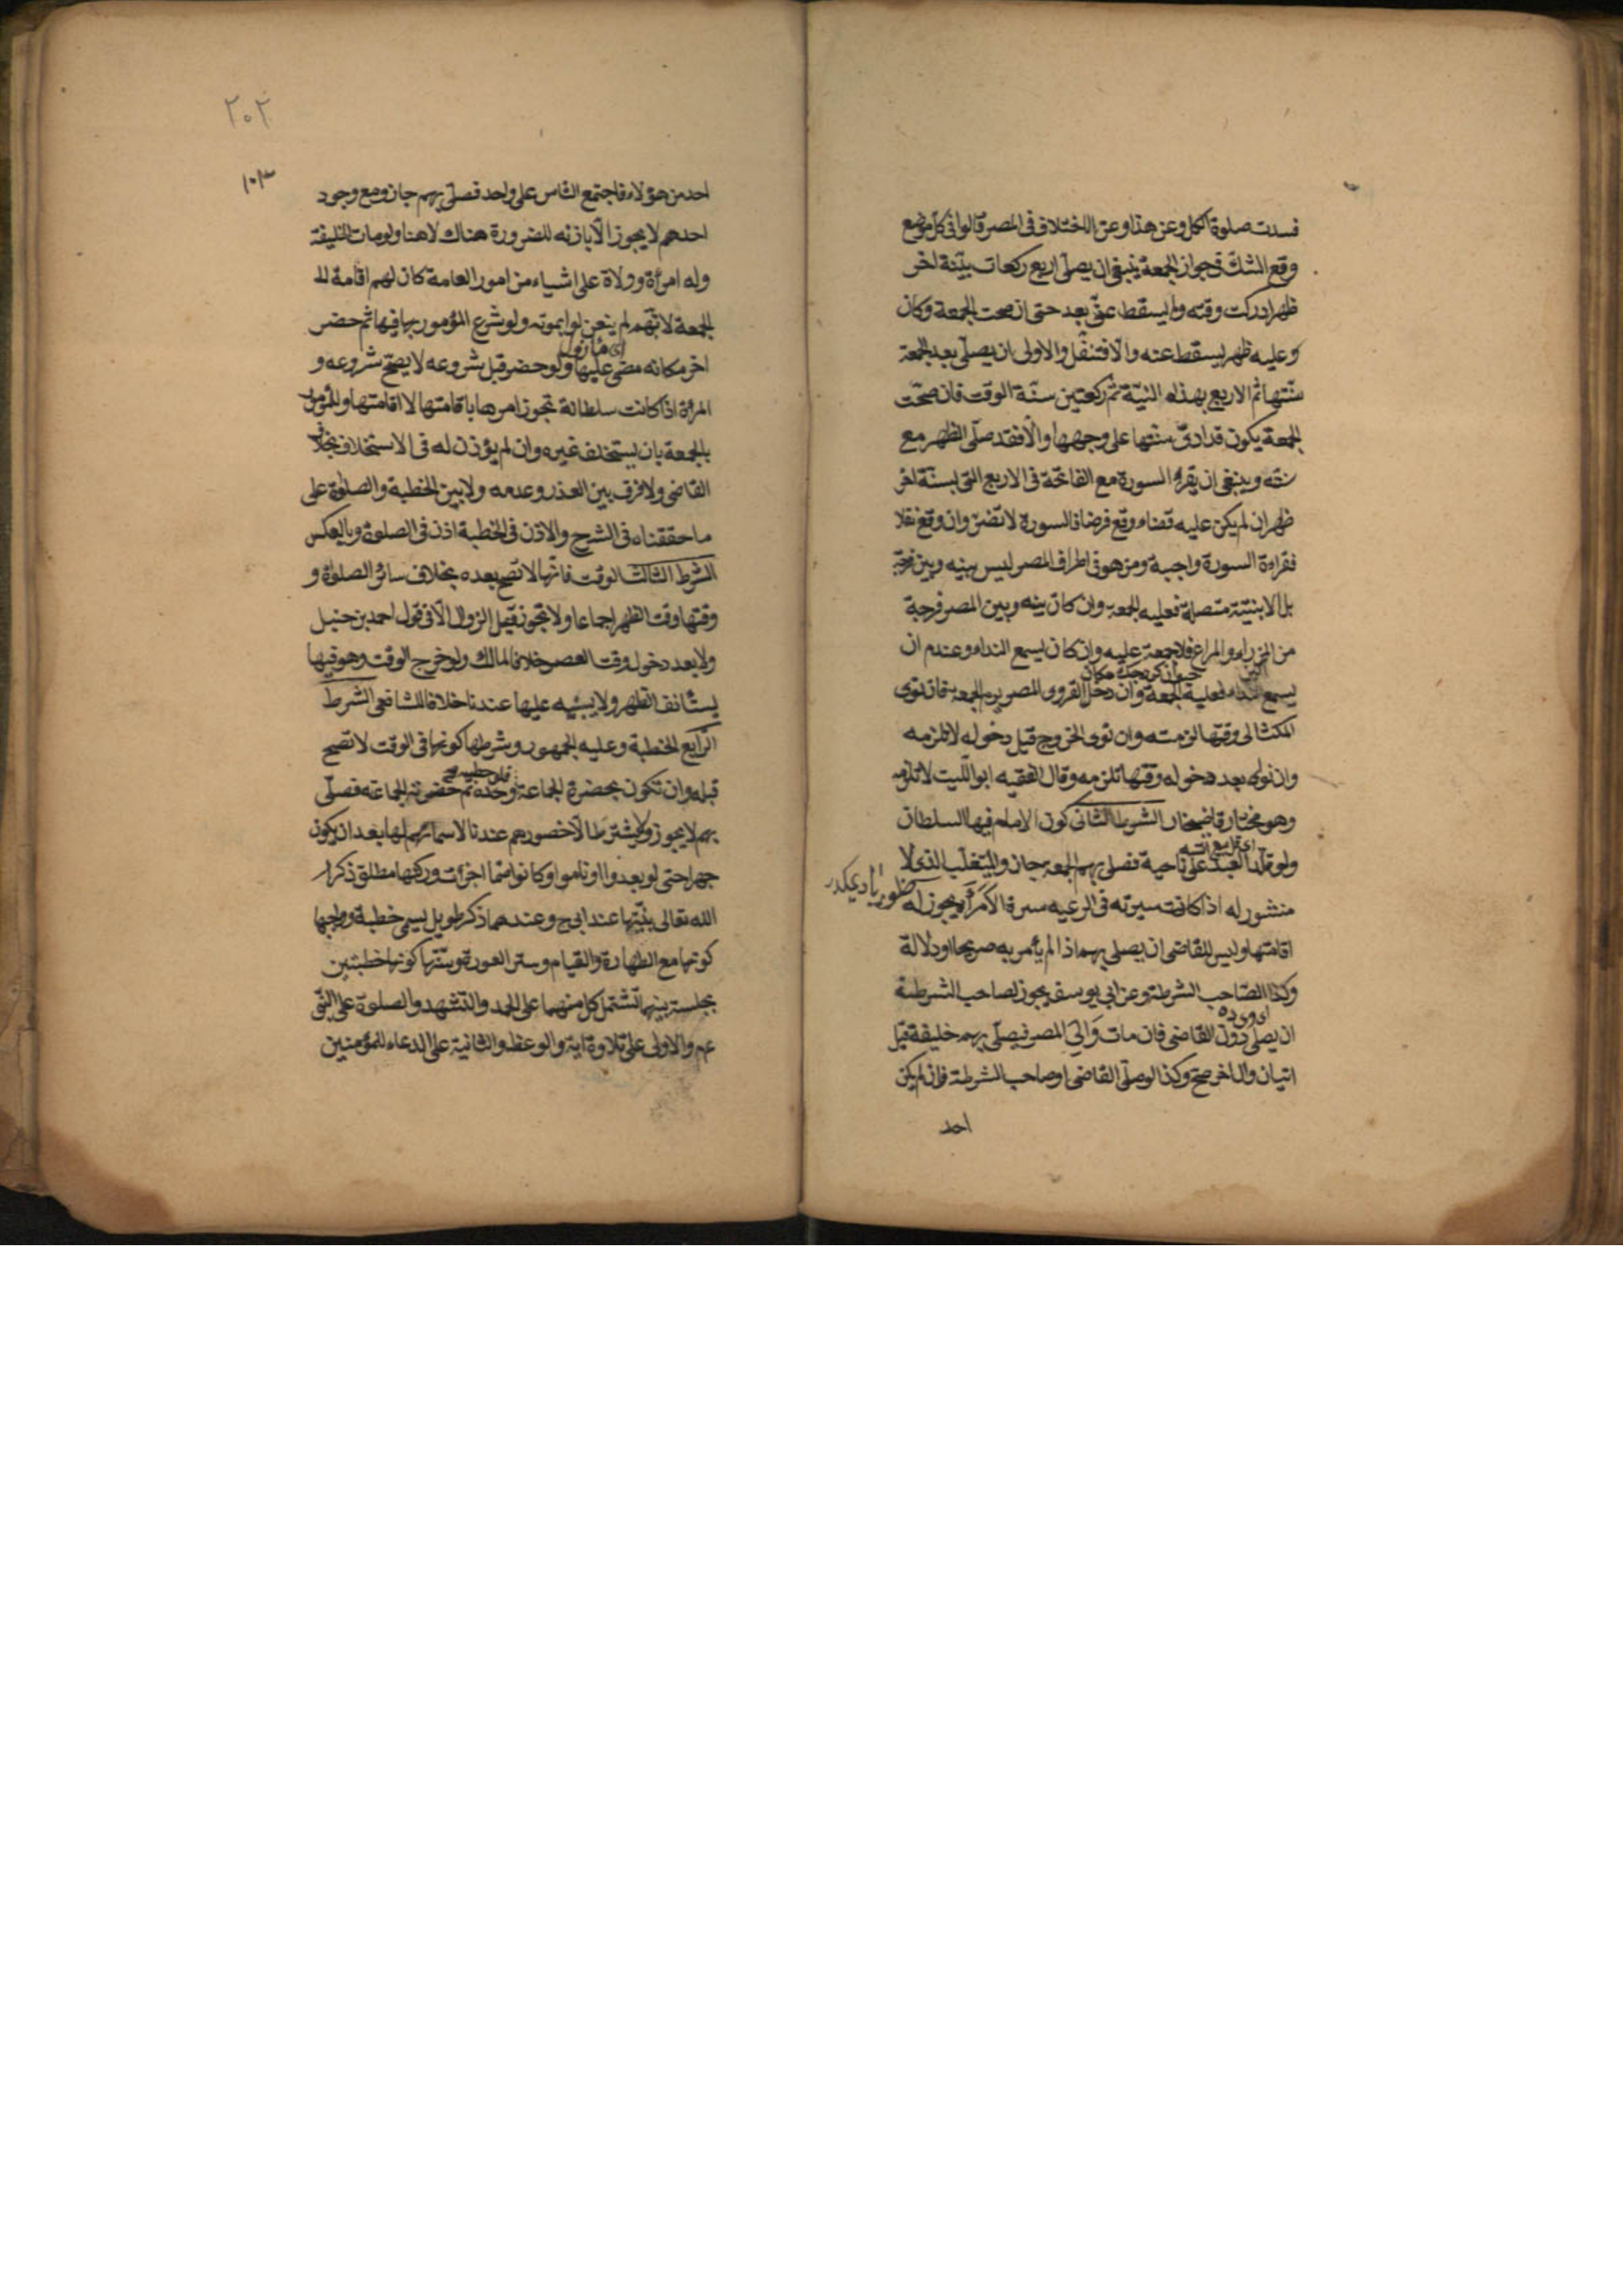 فسدت صلوة الكل وعن هذا وعن الاختلاف فى المصر قالوا فى كل موضع
وقع الشك فى جواز الجمعة ينبغى ان يصلى اربع ركعات بنية اخر
ظهر ادركت وقته ولم يسقط عنى بعد حتى ان صحت الجمعة وكان
وعليه ظهر يسقط عنه والا فتنفل والاولى ان يصلى بعد الجمعة
سنتها ثم الاربع بهذه النية ثم ركعتين سنة الوقت فان صحت
الجمعة يكون قد ادى سنتها على وجهها والا فقد صلى الظهر مع
سنته وينبغى ان يقرأ السورة مع الفاتحة فى الاربع التى بنية اخر
ظهر ان لم يكن عليه قضاء وقع فرضا فالسورة لا تضر وان وقع نفلا
فقراءة السورة واجبة ومن هو فى اطراف المصر ليس بينه وبين فرجة
بل الابنية متصلة فعليه الجمعة وان كان بينه وبين المصر فرجة
من المزارع والمراعى فلا جمعة عليه وان كان يسمع النداء وعند م ان
يسمع النداء فعليه الجمعة وان دخل القروى المصر يوم الجمعة فان نوى
المكث الى وقتها لزمته وان نوى الخروج قبل دخوله لا تلزمه
وان نوى بعد دخوله وقتها تلزمه وقال الفقيه ابو الليث لا تلزمه
وهو مختار قاضيخان الشرط الثانى كون الامام فيها السلطان
ولو تقلد العبد على ناحية فصلى بهم الجمعة جاز والمتغلب الذى لا
منشور له اذا كانت سيرته فى الرعية سيرة الامراء يجوز له
اقامتها وليس للقاضى ان يصلى بهم اذا لم يأمر به صريحا او دلالة
وكذا الصاحب الشرطة وعن ابى يوسف يجوز لصاحب الشرطة
ان يصلى دون القاضى فان مات والى المصر فيصلى بهم خليفة قبل
اتيان وال اخر صح وكذا لو صلى القاضى او صاحب الشرطة فان لم يكن
احد
٢٠٢
١٠٣
احد من هؤلاء فاجتمع الناس على واحد فصلى بهم جاز ومع وجود
احدهم لا يجوز الا باذنه للضرورة هناك لا هنا ولو مات الخليفة
وله امرأة وولاة على اشياء من امور العامة كان لهم اقامة الـ
الجمعة لانهم لم ينعزلوا بموته ولو شرع المؤمور بها فيها ثم حضر
اخر مكانه مضى عليها ولو حضر قبل شروعه لا يصح شروعه و
المرأة اذا كانت سلطانة تجوز امرها باقامتها لا اقامتها وللمؤمور
بالجمعة بان يستخلف غيره وان لم يؤذن له فى الاستخلاف بخلاف
القاضى ولا فرق بين العذر وعدمه ولا بين الخطبة والصلوة على
ما حققناه فى الشرح والاذن فى الخطبة اذن فى الصلوة وبالعكس
الشرط الثالث الوقت فانها لا تصح بعده بخلاف سائر الصلوة و
وقتها وقت الظهر اجماعا ولا تجوز قبل الزوال الا فى قول احمد بن حنبل
ولا بعد دخول وقت العصر خلافا لمالك ولو خرج الوقت وهو فيها
يستأنف الظهر ولا يبنيه عليها عندنا خلافا للشافعى الشرط
الرابع الخطبة وعليه الجمهور وشرطها كونها فى الوقت لا تصح
قبله وان تكون بحضرة الجماعة وحده ثم حضرت الجماعة فصلى
بهم لا يجوز ولا يشترط الا حضورهم عندنا لا سماعهم لها بعد ان يكون
جهرا حتى لو بعدوا او ناموا او كانوا صما اجزأت وركنها مطلق ذكر
الله تعالى بنيتها عند ابى ح وعندهما ذكر طويل يسمى خطبة وواجبها
كونها مع الطهارة والقيام وستر العورة وسنتها كونها خطبتين
بجلسة بينهما تشتمل كل منهما على الحمد والتشهد والصلوة على النبى
عم والاولى على تلاوة اية والوعظ والثانية على الدعاء للمؤمنين